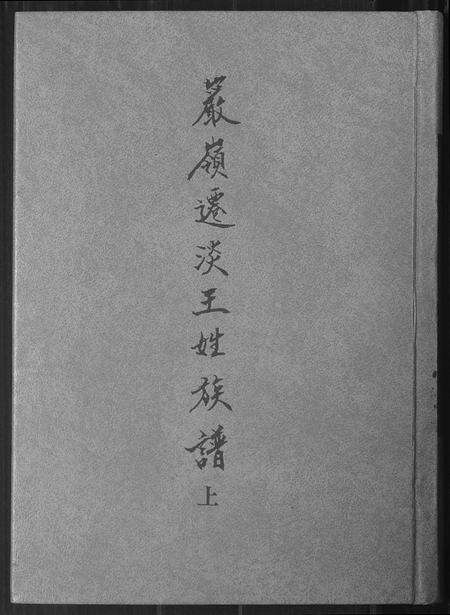 嚴嶺遷淡王姓族譜上